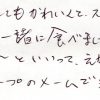 てもかわいくて、ス
一緒に食べまし
～といいって、え
ープのメームで